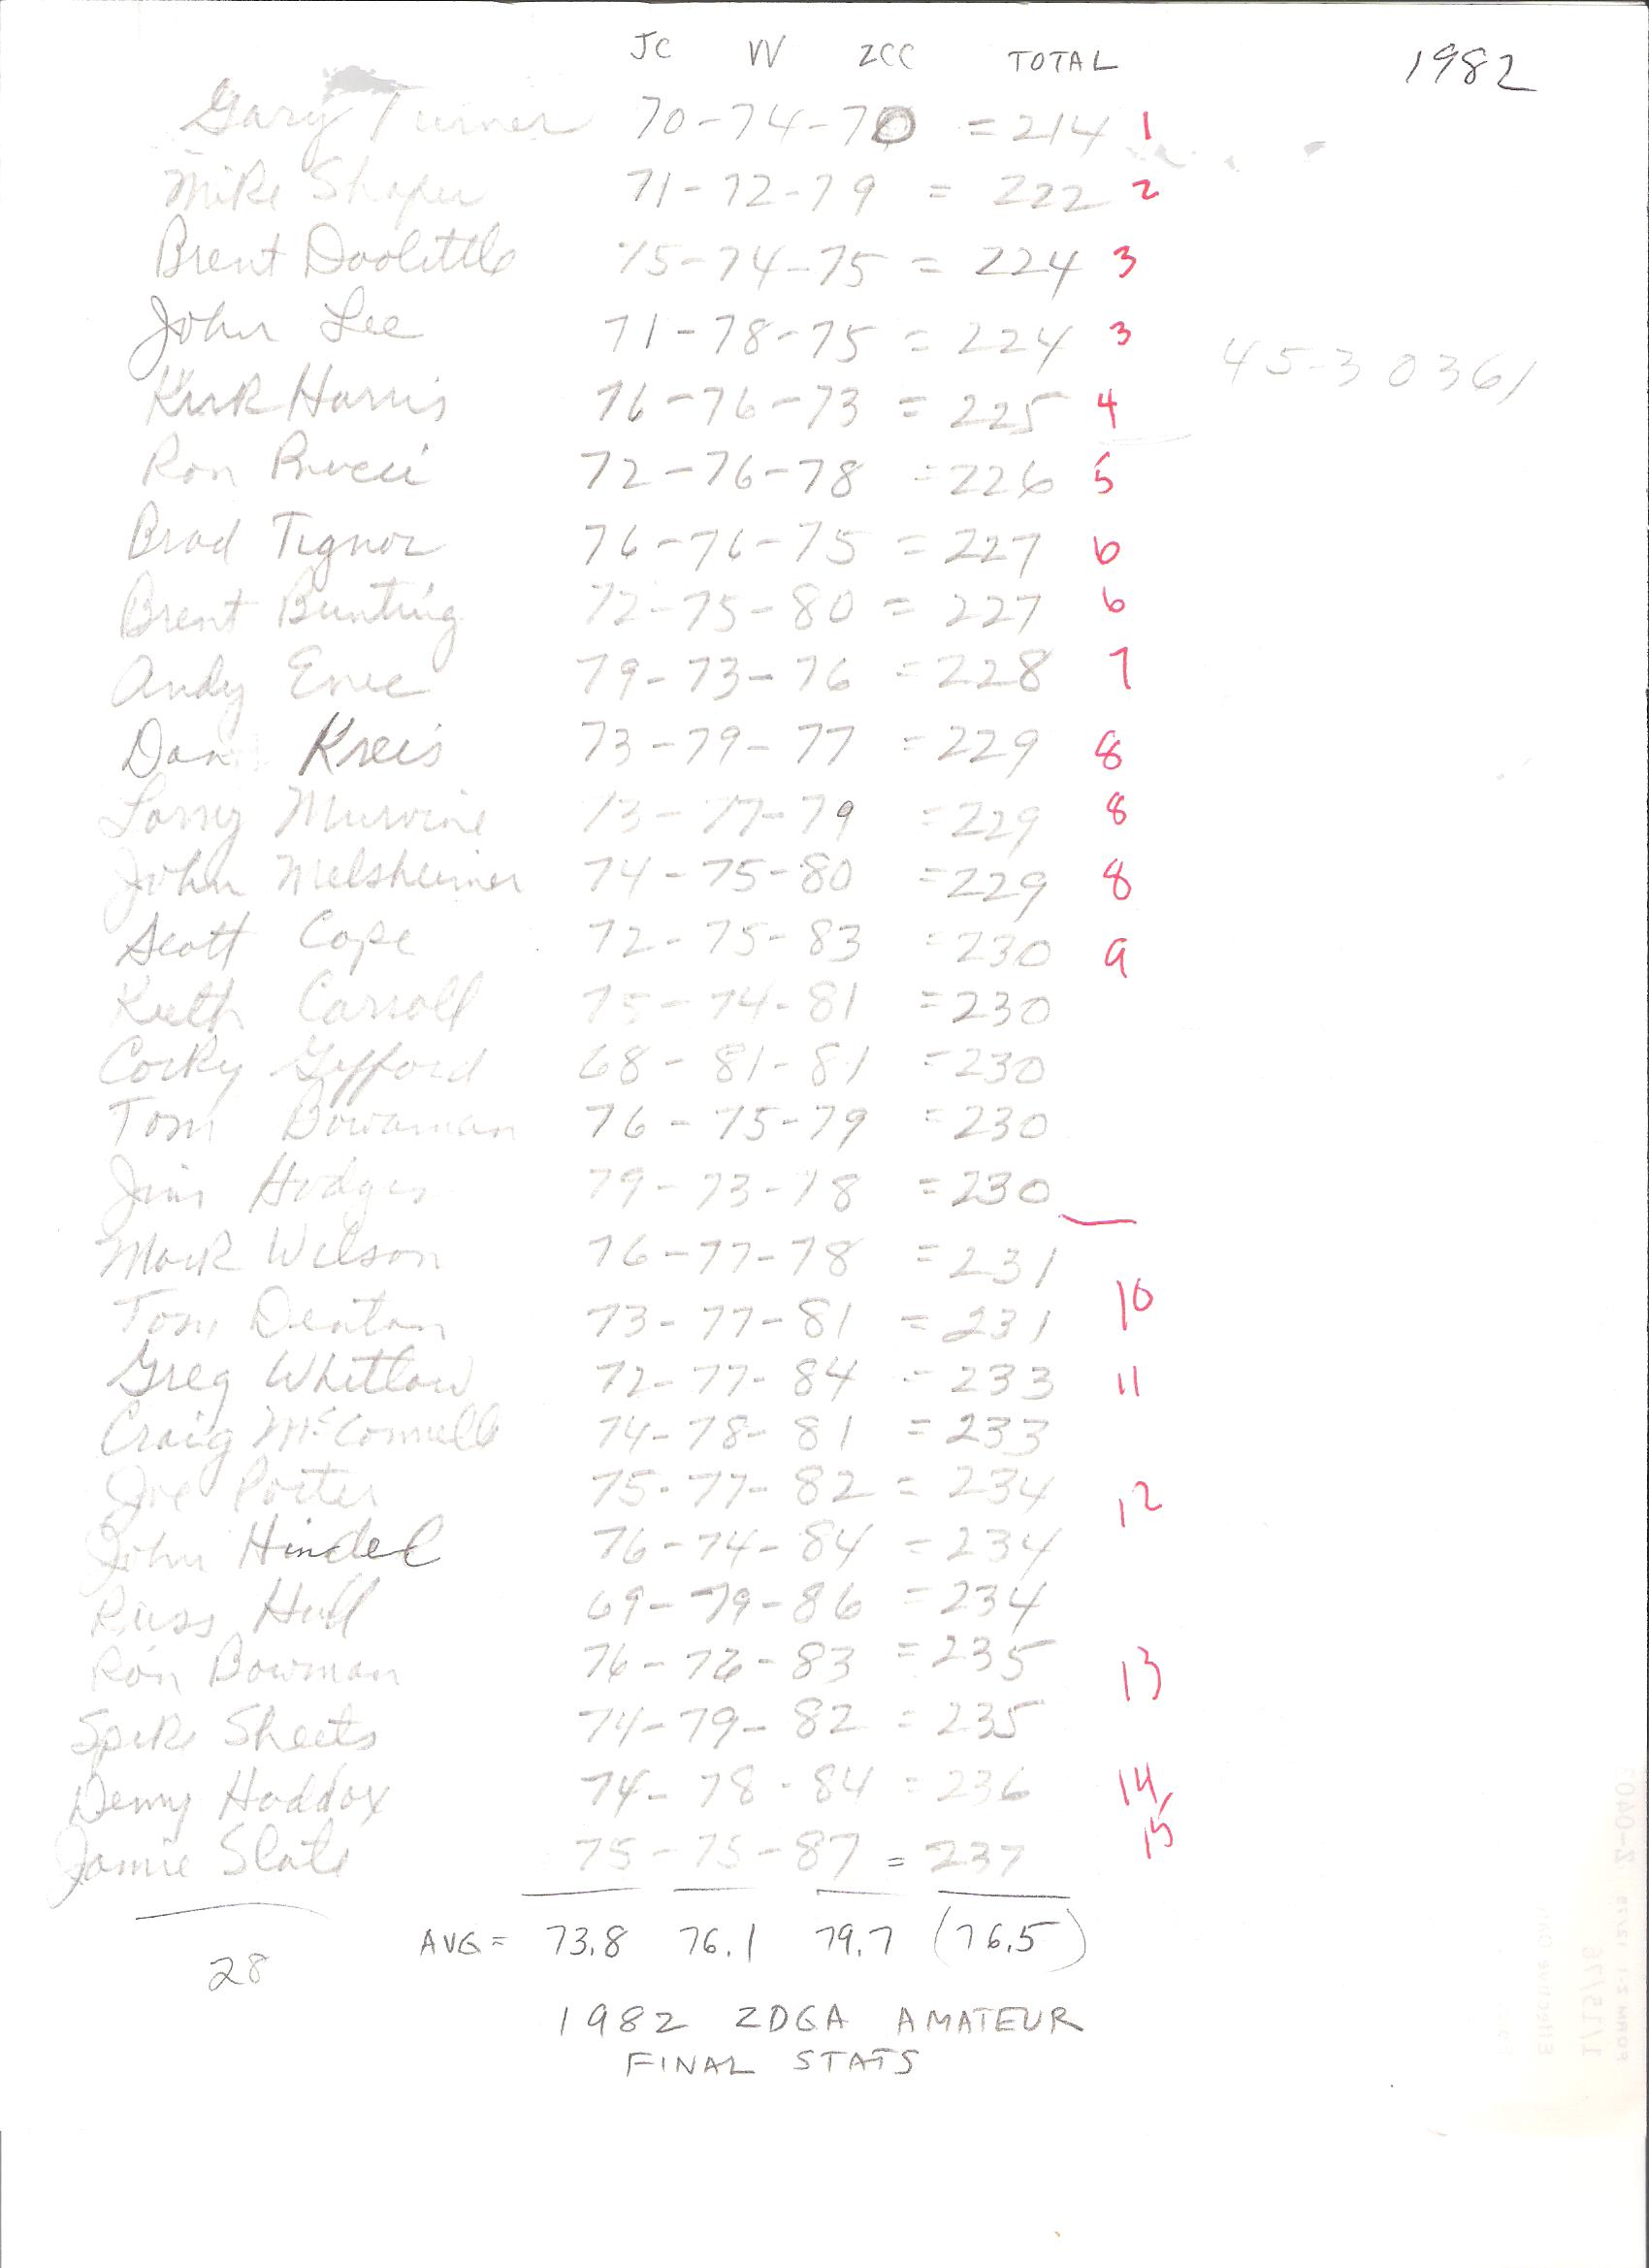 JC VV ZCC TOTAL 1982
Gary Turner 70-74-70 = 214 1
Mike Shaper 71-72-79 = 222 2
Brent Doolittle 75-74-75 = 224 3
John Lee 71-78-75 = 224 3
45-30361
Kirk Harris 76-76-73 = 225 4
Ron Pucci 72-76-78 = 226 5
Brad Tignor 76-76-75 = 227 6
Brent Bunting 72-75-80 = 227 6
Andy 79-73-76 = 228 7
Dan Kreis 73-79-77 = 229 8
Larry 73-77-79 = 229 8
John Melsheimer 74-75-80 = 229 8
Scott Cope 72-75-83 = 230 9
Keith Carroll 75-74-81 = 230
Corky Gyfford 68-81-81 = 230
Tom Bowman 76-75-79 = 230
Jim Hodges 79-73-78 = 230
Mark Wilson 76-77-78 = 231
Tom Denton 73-77-81 = 231 10
Greg Whitlow 72-77-84 = 233 11
Craig McConnell 74-78-81 = 233
Joe Porter 75-77-82 = 234 12
John Hindel 76-74-84 = 234
Russ Hull 69-79-86 = 234
Ron Bowman 76-76-83 = 235 13
Spike Sheets 74-79-82 = 235
Denny Haddox 74-78-84 = 236 14
Jamie Slate 75-75-87 = 237 15
28 AVG = 73.8 76.1 79.7 (76.5)
1982 ZDGA AMATEUR
FINAL STATS